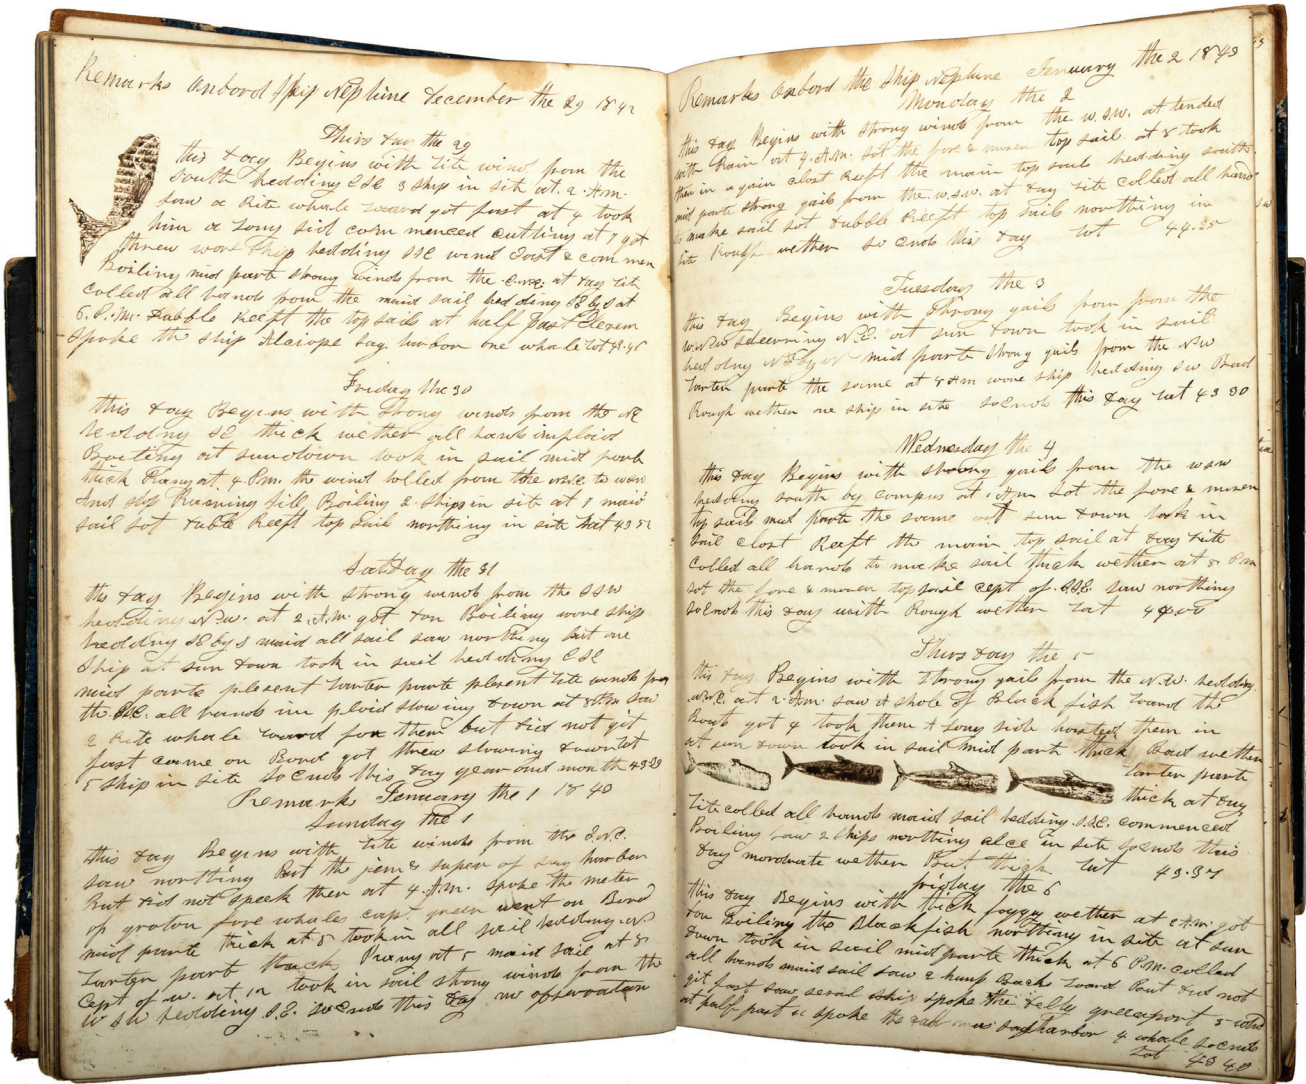 Remarks onbord ship Neptune December the 29 1842
Thirsday the 29
this day Begins with Lite wind from the
South hedding ESE 3 ship in sit at 2 Am
saw a Rite whale Loward got fast at 4 took
him a Long sid commenced cutting at 7 got
threw wore ship hedding SSE wind East & commen
Boiling mid parte strong winds from the E.N.E. at day Lite
colled all hands from the maid sail hedding SE by S at
6. P.M. dubble Reeft the top sails at half past Eleven
spoke the ship Alciope sag harbor one whale Lot 43.45
Friday the 30
this day Begins with Strong winds from the NE
hedding SE thick wether all hands imploid
Boiling at sundown took in sail mid part
thick Rany at 4 P.M. the wind holled from the NNE to WSW
And stop Raining still Boiling 2 ships in site at 7 maid
sail sot dubble Reeft top sails northing in site Lat 43 52
Satday the 31
this day Begins with strong winds from the SSW
hedding N.W. at 2 A.M. got don Boiling wore ship
hedding SE by S maid all sail saw northing but one
Ship at sun down took in sail hedding ESE
mid parte plesent Larter parte plesent Lite winds from
the E.S.E. all hands im ploid stowing down at 8 P.M saw
2 Rite whale Loward for them but did not git
fast came on Bord got threw stowing down Lot
5 ship in site So Ends this day year and month 43 29
Remarks Jenuary the 1 1843
Sunday the 1
this day Begins with Lite winds from the E.N.E.
saw northing But the jem & super of sag harbor
But did not speek them at 4 A.M. spoke the meter
of groton five whales capt. green went on Bord
mid parte thick at 8 took in all sail hedding N
Larter part thick Rany at 5 maid sail at 8
Cept of W. at 12 took in sail strong winds from the
W SW hedding S.E. So Ends this day no observation
Remarks onbord the Ship Neptune Jenuary the 2 1843
Monday the 2
this day Begins with strong winds from the W.S.W. at tended
with Rain at 4. A.M. sot the fore & mizen top sail at 8 took
them in a gain clost Reeft the main top sails hedding south
mid parte strong gails from the W.S.W. at day Lite colled all hands
to make sail sot dubble Reeft top sails northing in
site Rough wether So Ends this day Lot 44.25
Tuesday the 3
this day Begins with Strong gails from from the
W.N.W steearing N.E. at sun down took in sail
hedding NE by N mid parte strong gails from the NW
Larter parte the same at 8 Am wore ship hedding SW Bad
Rough wether one ship in site So Ends this day Lat 43 30
Wednesday the 4
this day Begins with strong gails from the WSW
hedding south by compus at 1 Am sot the fore & mizen
top sails mid parte the same at sun down took in
sail clost Reeft the main top sail at day Lite
colled all hands to make sail thick wether at 8 P.m
sot the fore & mizen top sail cept of E.S.E. saw northing
So Ends this day with Rough wether Lat 44.00
Thirsday the 5
this day Begins with strong gails from the N.W. hedding
at 2 Am saw A shole of Black fish Loward the
Boats got 4 took them A Long side hoisted them in
at sun down took in sail mid part thick Bad wether
Larter parte
thick at day
Lite colled all hands maid sail hedding S.S.E. commenced
Boiling saw 2 ships northing alce in site So Ends this
day mordrate wether But thick Lat 43.37
friday the 6
this day Begins with thick foggy wether at 2 A.m. got
don Boiling the Blackfish northing in site at sun
down took in sail mid parte thick at 6 P.M. colled
all hands maid sail saw 2 hump Back Loward But did not
git fast saw seral ship spoke the greenport 5
at half past 11 spoke the sag harbor 4 whale So Ends
Lot 43 40